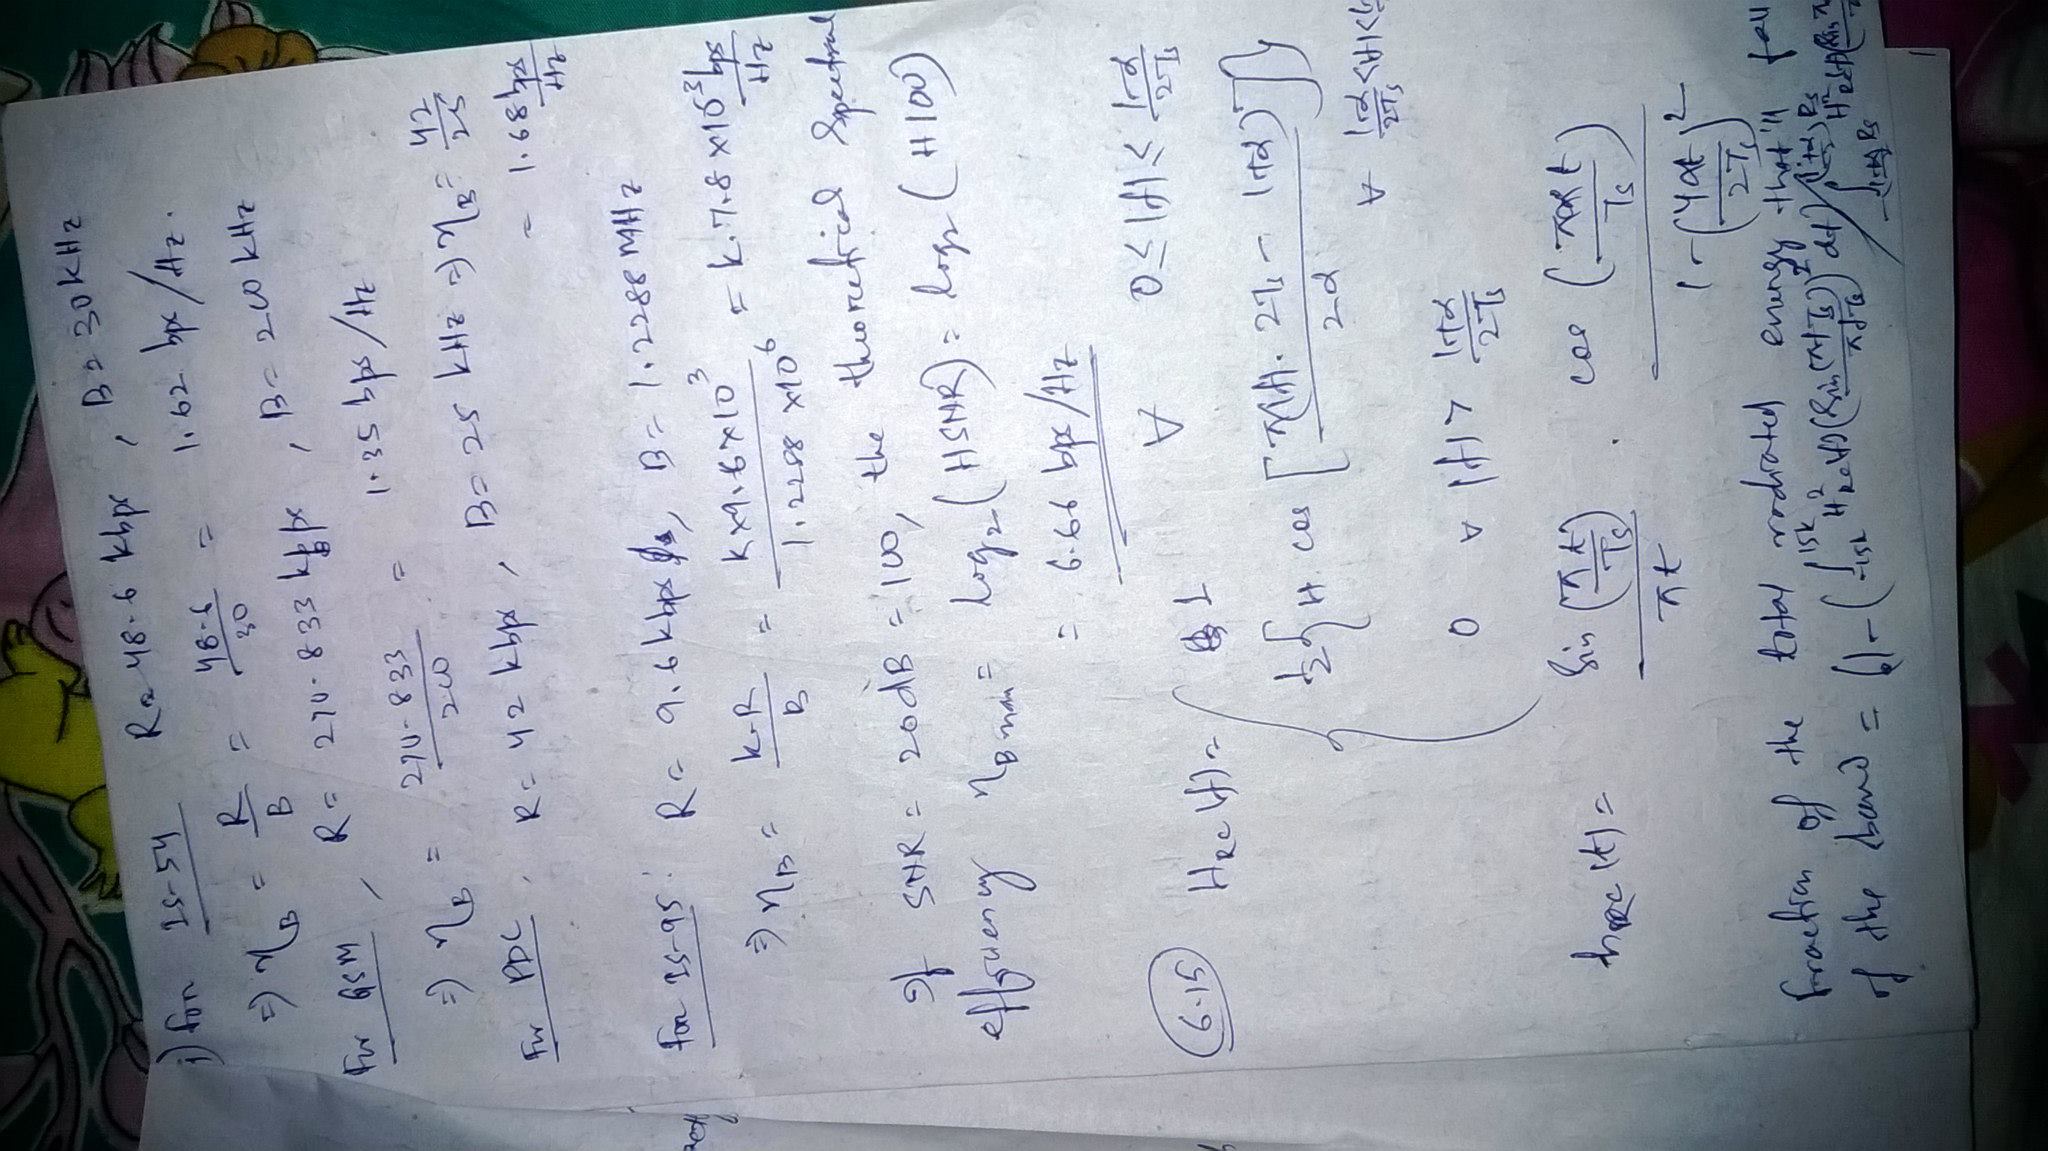 i) For IS-54 R = 48.6 kbps, B = 30 kHz
⇒ η_B = R/B = 48.6/30 = 1.62 bps/Hz.
For GSM, R = 270.833 kbps, B = 200 kHz
⇒ η_B = 270.833/200 = 1.35 bps/Hz
For PDC, R = 42 kbps, B = 25 kHz ⇒ η_B = 42/25
= 1.68 bps/Hz
For IS-95: R = 9.6 kbps, B = 1.2288 MHz
⇒ η_B = k.R/B = k×9.6×10^3/1.2288×10^6 = k.7.8×10^-3 bps/Hz
If SNR = 20dB = 100, the theoretical spectral
efficiency η_Bmax = log₂(1+SNR) = log₂(1+100)
= 6.66 bps/Hz
6.15 H_RC(f) = { 1 ∀ 0 ≤ |f| ≤ (1-α)/2T_s
1/2{1+cos[(π|f|.2T_s - 1+α)/2α]} ∀ (1-α)/2T_s < |f| ≤
0 ∀ |f| > (1+α)/2T_s
h_RC(t) = sin(πt/T_s)/πt . cos(παt/T_s)/(1-(4αt/2T_s)^2)
fraction of the total radiated energy that'll fall
of the band =